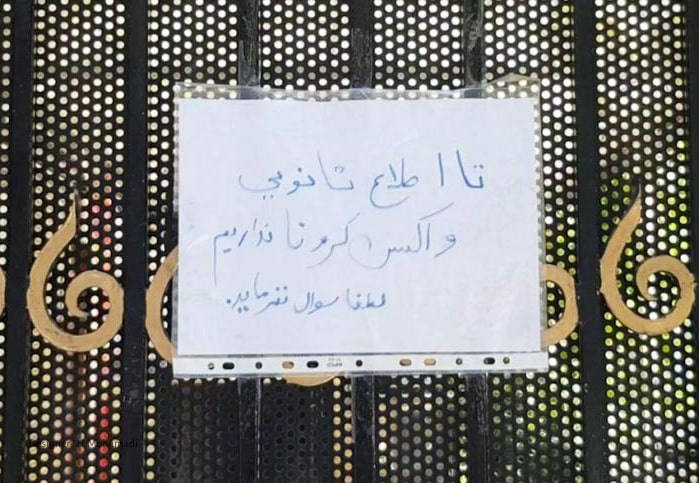 تا اطلاع ثانویی
واکسن کرونا نداریم
لطفا سوال نفرمایید.